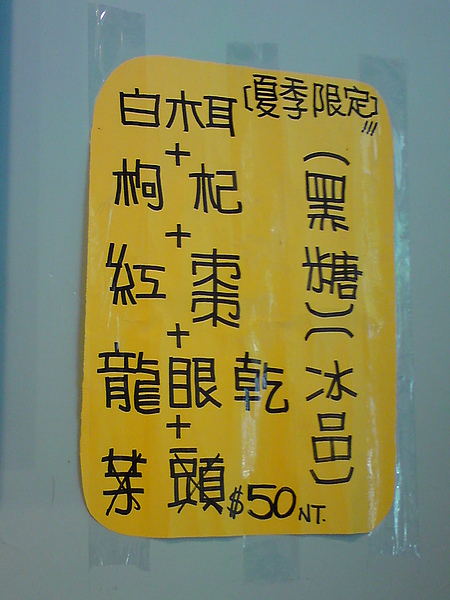 [夏季限定]!!!
白木耳
+
枸杞
+
紅棗
+
龍眼乾
+
芋頭
$50NT.
(黑糖)(冰品)